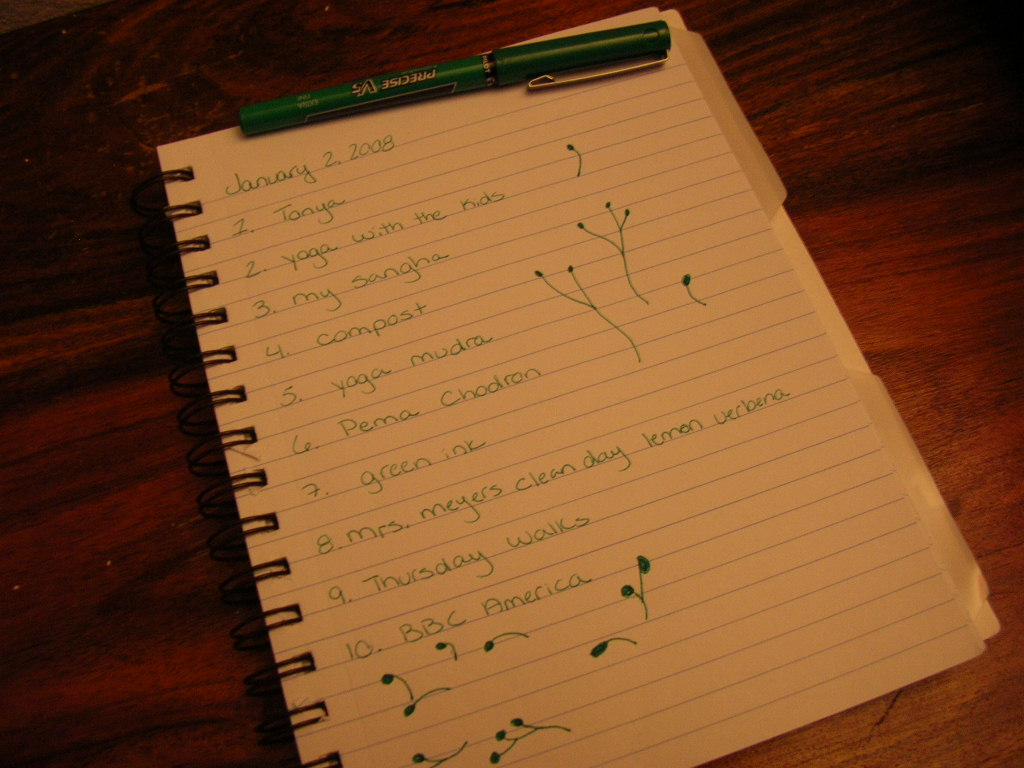 PRECISE V5
EXTRA
FINE
January 2, 2008
1. Tonya
2. yoga with the kids
3. my sangha
4. compost
5. yoga mudra
6. Pema Chodron
7. green ink
8. mrs. meyers clean day lemon verbena
9. Thursday walks
10. BBC America